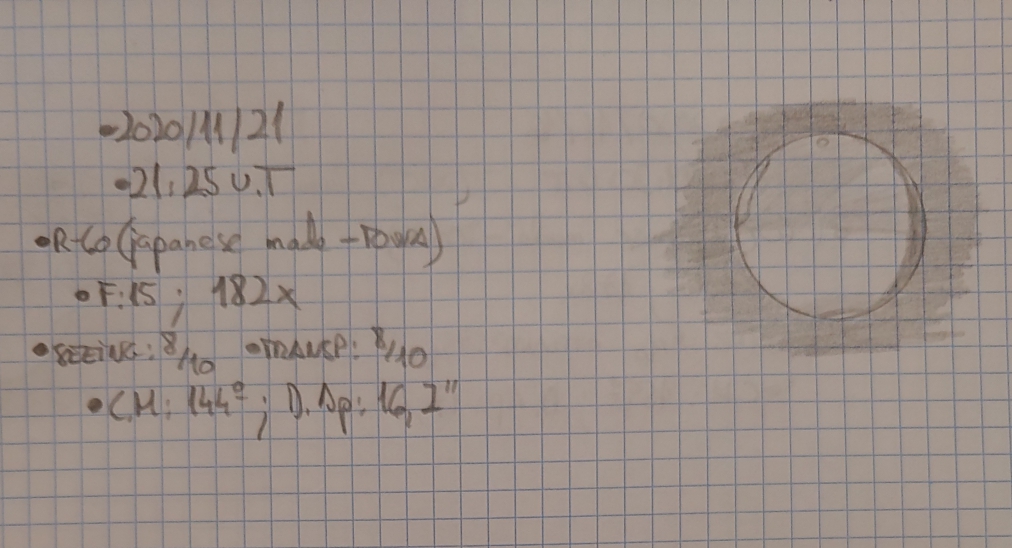 •2020/11/21
•21:25 U.T
•R-60 (japanese made - TOWA)
•F:15 ; 182x
•SEEING: 8/10 •TRANSP: 8/10
•C.M: 144º ; D.Ap: 16,7"